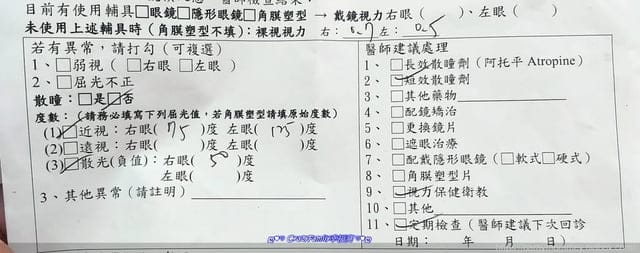 目前有使用輔具□眼鏡□隱形眼鏡□角膜塑型→戴鏡視力右眼(　　)、左眼(　　)
未使用上述輔具時（角膜塑型不填）：裸視視力 右：0.7 左：0.5
若有異常，請打勾（可複選）
1、□弱視（□右眼□左眼）
2、□屈光不正
散瞳：□是☑否
度數：（請務必填寫下列屈光值，若角膜塑型請填原始度數）
(1)☑近視：右眼(75)度 左眼(125)度
(2)□遠視：右眼(　　)度 左眼(　　)度
(3)☑散光(負值)：右眼(50)度
左眼(　　)度
3、其他異常（請註明）
醫師建議處理
1、□長效散瞳劑（阿托平 Atropine）
2、☑短效散瞳劑
3、□其他藥物
4、□配鏡矯治
5、□更換鏡片
6、□遮眼治療
7、□配戴隱形眼鏡（□軟式□硬式）
8、□角膜塑型片
9、☑視力保健衛教
10、□其他
11、☑定期檢查（醫師建議下次回診
日期：　年　月　日）